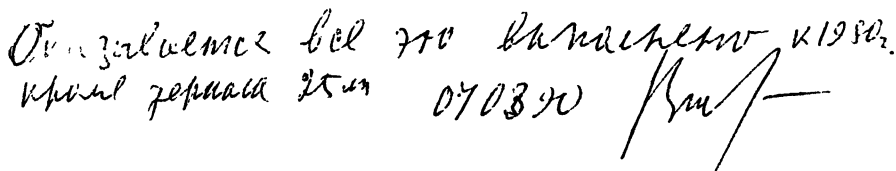 Оказывается все это выполнено к 1980г.
кроме зеркала 25 м 070390